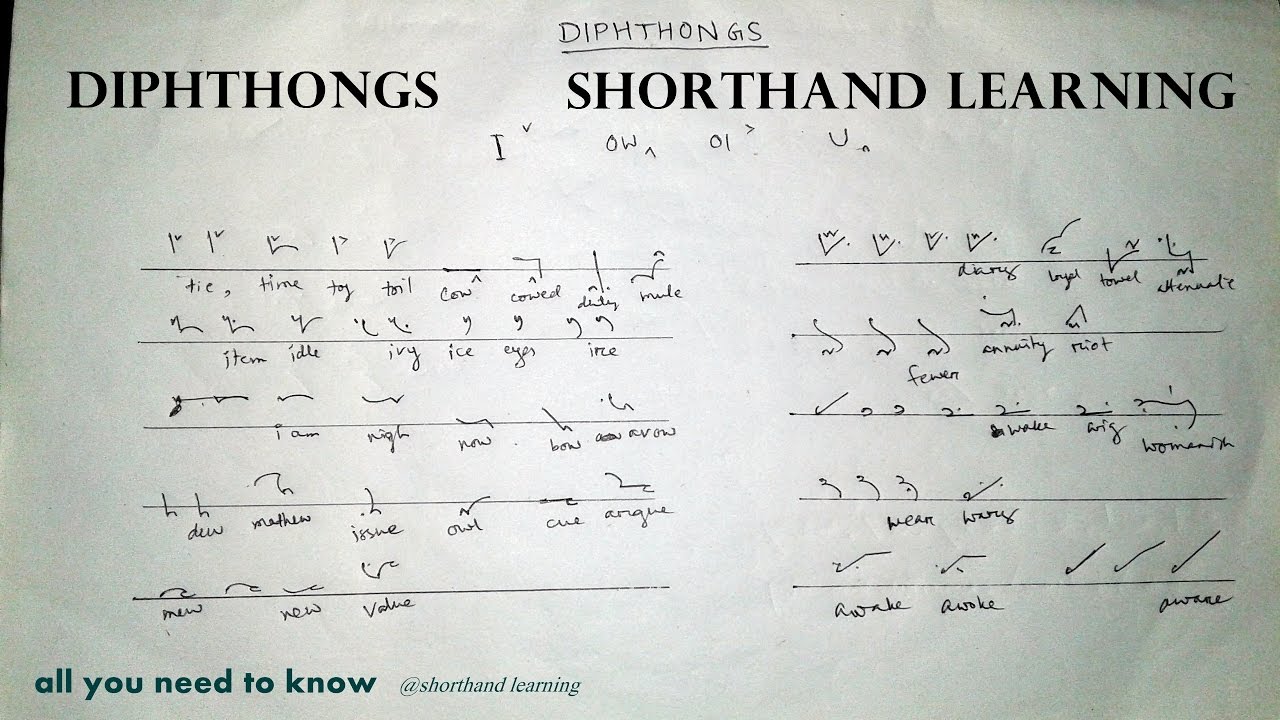 DIPHTHONGS
DIPHTHONGS SHORTHAND LEARNING
I OW OI U
tie, time toy toil cow cowed duty mule
item idle ivy ice eyes ire
i am nigh now bow avow
dew mathew issue owl cue argue
mew new value
diary loyal towel attenuate
fewer annuity riot
awake wig womanish
wear wary
awake awoke aware
all you need to know @shorthand learning